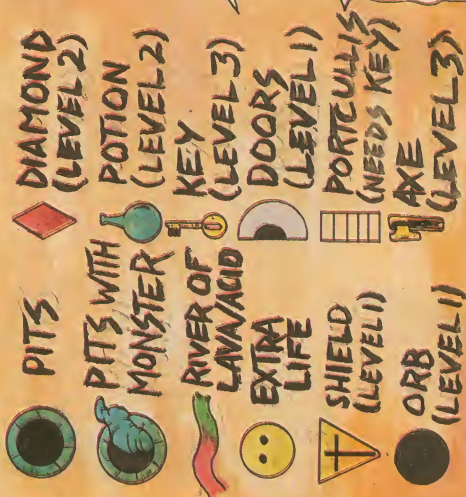 PITS
PITS WITH
MONSTER
RIVER OF
LAVA/ACID
EXTRA
LIFE
SHIELD
(LEVEL 1)
ORB
(LEVEL 1)
DIAMOND
(LEVEL 2)
POTION
(LEVEL 2)
KEY
(LEVEL 3)
DOORS
(LEVEL 1)
PORTCULLIS
(NEEDS KEY)
AXE
(LEVEL 3)